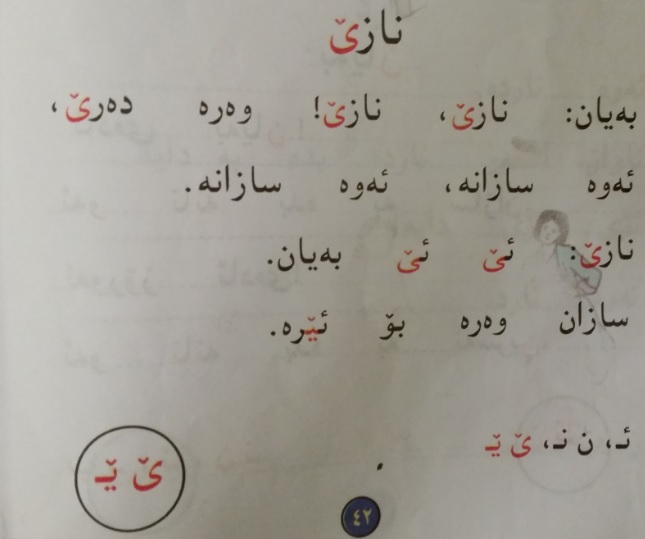 نازێ
بەیان: نازێ، نازێ! وەرە دەرێ،
ئەوە سازانە، ئەوە سازانە.
نازێ: ئێ ئێ بەیان.
سازان وەرە بۆ ئێرە.
ئـ، ن نـ، ێ یـێ
ێ یـێ
٤٢